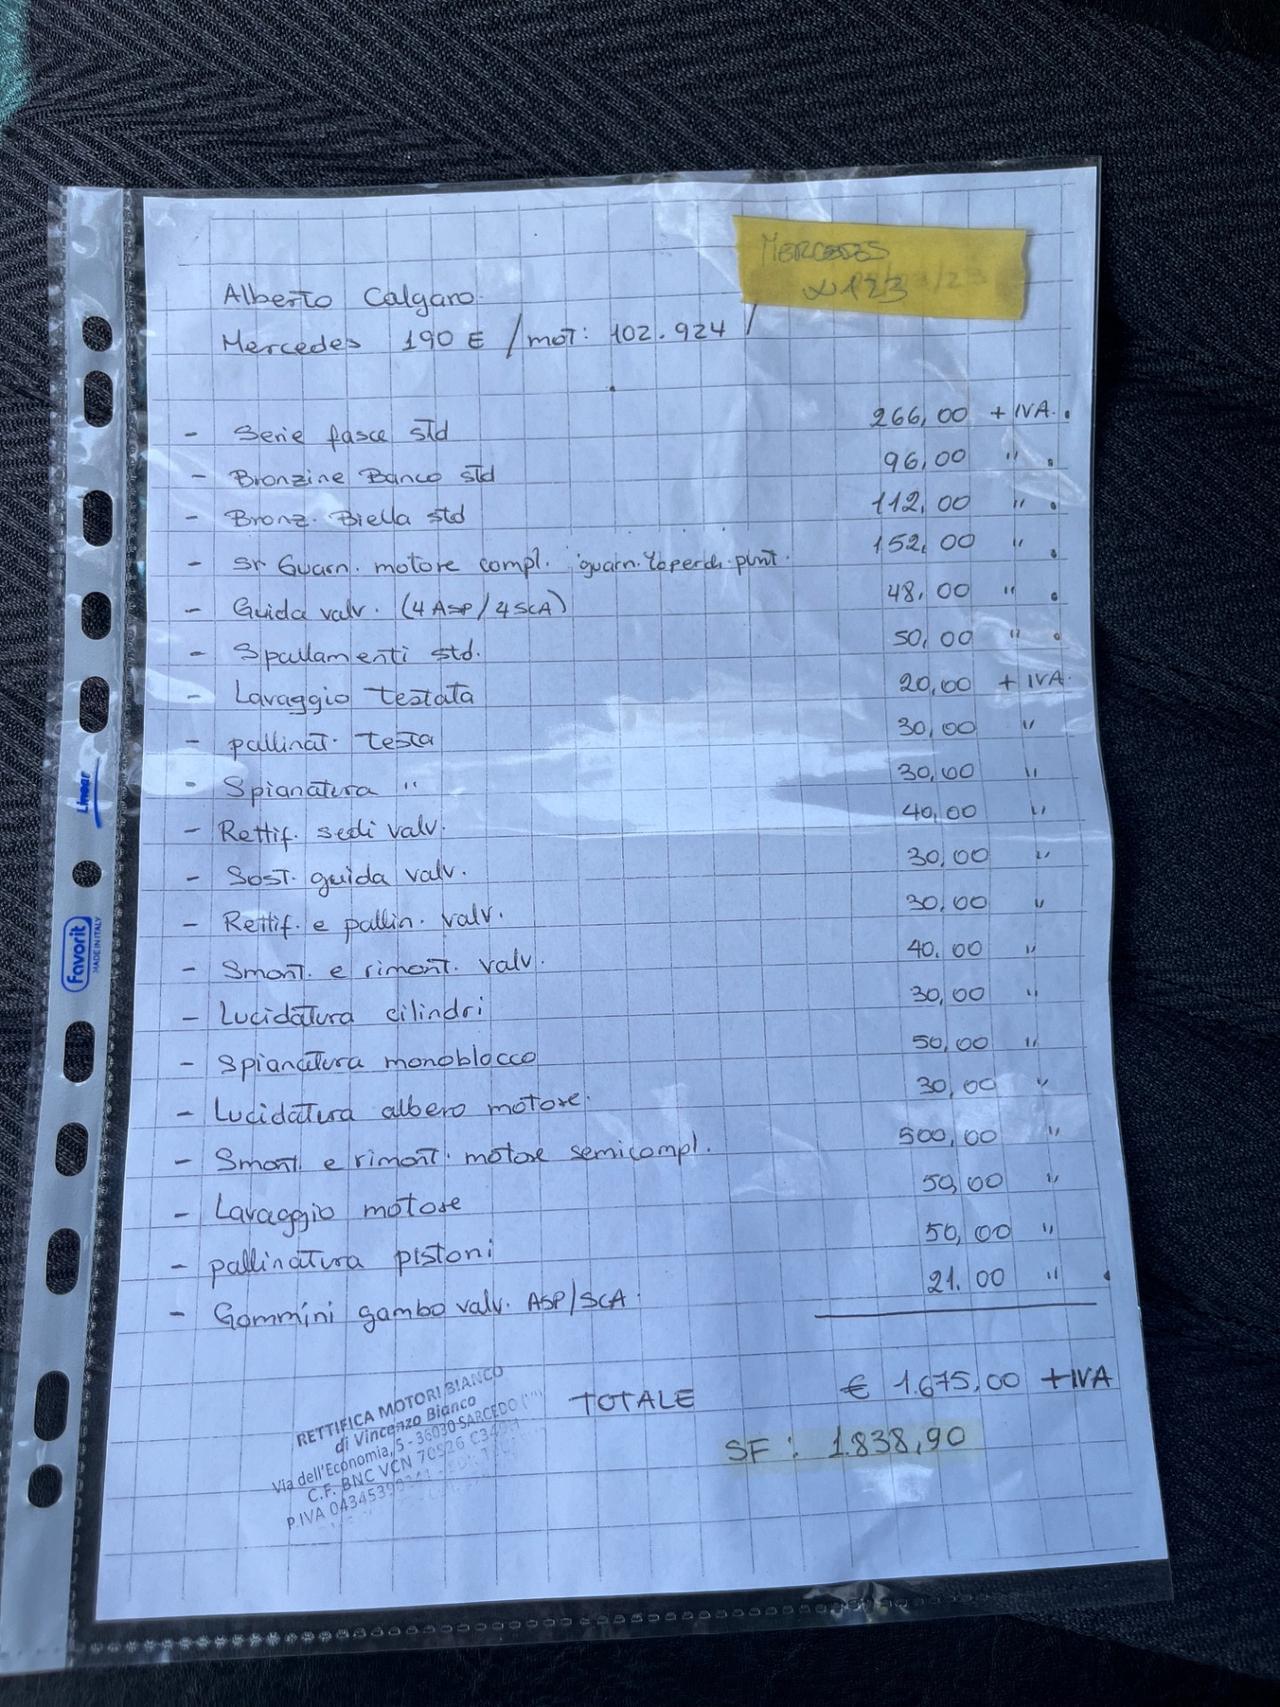 MERCEDES
Alberto Calgaro
Mercedes 190 E / mot: 102.924 /
- Serie fasce std 266,00 + IVA.
- Bronzine Banco std 96,00 "
- Bronz. Biella std 112,00 "
- Sr Guarn. motore compl. guarn. coperch. punt. 152,00 "
- Guida valv. (4 ASP/4 SCA) 48,00 "
- Spallamenti std. 50,00 "
- Lavaggio testata 20,00 + IVA.
- pallinat. testa 30,00 "
- Spianatura " 30,00 "
- Rettif. sedi valv. 40,00 "
- Sost. guida valv. 30,00 "
- Rettif. e pallin. valv. 30,00 "
- Smont. e rimont. valv. 40.00 "
- Lucidatura cilindri 30,00 "
- Spianatura monoblocco 50,00 "
- Lucidatura albero motore. 30,00 "
- Smont. e rimont. motore semicompl. 500,00 "
- Lavaggio motore 50,00 "
- pallinatura pistoni 50,00 "
- Gommini gambo valv. ASP/SCA. 21.00 "
TOTALE € 1.675,00 + IVA
SF: 1.838,90
RETTIFICA MOTORI BIANCO
di Vincenzo Bianco
Via dell'Economia, 5 - 36030 SARCEDO
C.F. BNC VCN
P.IVA
Linear
Favorit
MADE IN ITALY